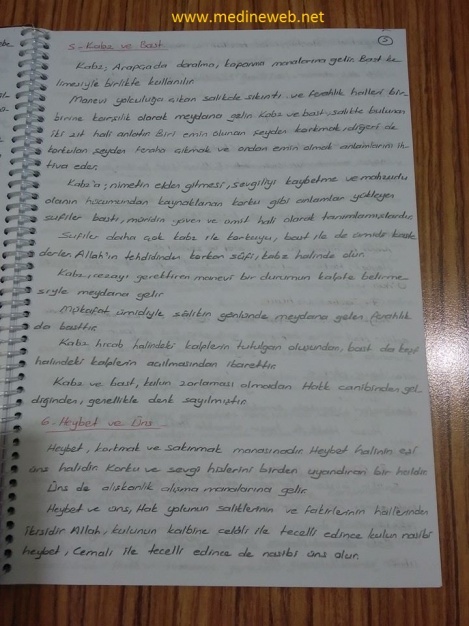 www.medineweb.net
5
5-Kabz ve Bast
Kabz; Arapçada daralma, kapanma manalarına gelir. Bast ke
limesiyle birlikte kullanılır.
Manevi yolculuğa çıkan salikde sıkıntı ve ferahlık halleri bir-
birine karşılık olarak meydana gelir. Kabz ve bast, salikte bulunan
iki zıt hali anlatır. Biri emin olunan şeyden korkmak, diğeri de
korkulan şeyden feraha çıkmak ve ondan emin olmak anlamlarını ih-
tiva eder.
Kabz'a; nimetin elden gitmesi, sevgiliyi kaybetme ve
olanın hücumundan kaynaklanan korku gibi anlamlar yükleyen
sufiler bastı, müridin güven ve ümit hali olarak tanımlamışlardır.
Sufiler daha çok kabz ile korkuyu, bast ile de ümidi kaste
derler. Allah'ın tehdidinden korkan sûfi, kabz halinde olur.
Kabz, cezayı gerektiren manevi bir durumun kalpte belirme-
siyle meydana gelir
Mükafat ümidiyle sâlikin gönlünde meydana gelen ferahlık
da basttır.
Kabz hicab halindeki kalplerin tutulgan oluşundan, bast da keşf
halindeki kalplerin açılmasından ibarettir.
Kabz ve bast, kulun zorlaması olmadan Hakk canibinden gel-
diğinden, genellikle denk sayılmıştır.
6-Heybet ve Üns
Heybet, korkmak ve sakınmak manasınadır. Heybet halinin eşi
üns halidir. Korku ve sevgi hislerini birden uyandıran bir haldir.
Üns de alışkanlık alışma manalarına gelir.
Heybet ve üns, Hak yolunun saliklerinin ve fakirlerinin hallerinden
ikisidir. Allah, kulunun kalbine celâli ile tecelli edince kulun nasibi
heybet, Cemali ile tecelli edince de nasibi üns olur.